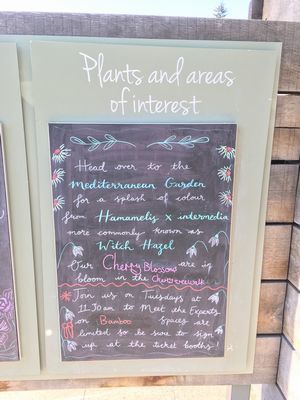 Plants and areas
of interest
Head over to the
Mediterranean Garden
for a splash of colour
from Hamamelis x intermedia
more commonly known as
Witch Hazel
Our Cherry Blossoms are in
bloom in the
Join us on Tuesdays at
11.30am to Meet the Experts
on Bamboo Spaces are
limited so be sure to sign
up at the ticket booths!